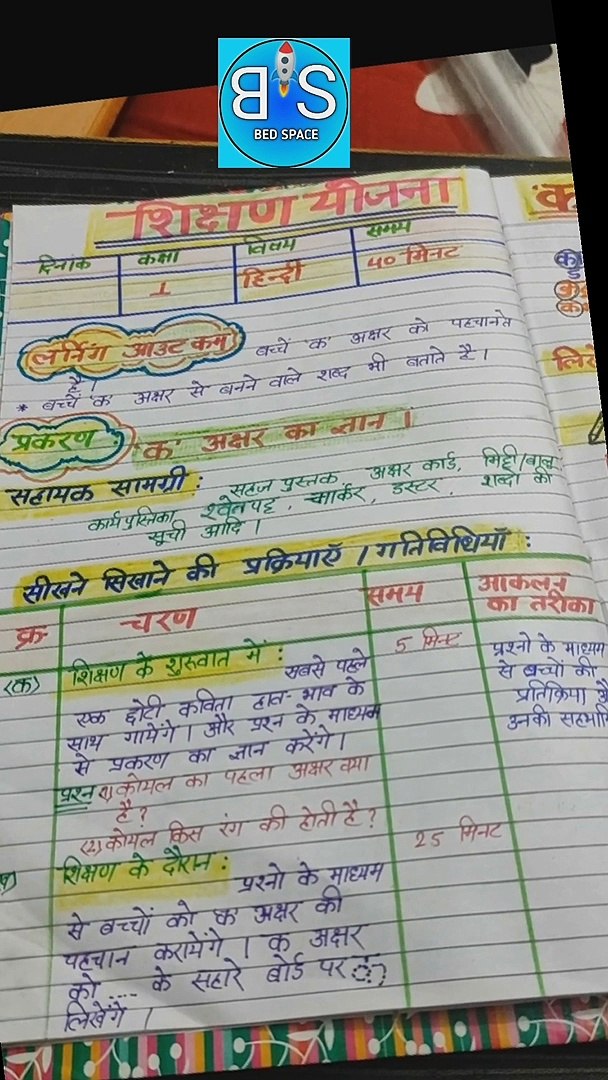 BS
BED SPACE
शिक्षण योजना
दिनांक कक्षा विषय समय
1 हिन्दी 40 मिनट
लर्निंग आउट कम बच्चें 'क' अक्षर को पहचानते
है।
* बच्चें 'क' अक्षर से बनने वाले शब्द भी बताते है।
प्रकरण 'क' अक्षर का ज्ञान।
सहायक सामग्री : सहज पुस्तक, अक्षर कार्ड, मिट्टी/बालू
कार्यपुस्तिका, श्वेतपट्ट, मार्कर, डस्टर, शब्दो की
सूची आदि।
सीखने सिखाने की प्रक्रियाएँ / गतिविधियाँ :
क्र चरण समय आकलन
का तरीका
(क) शिक्षण के शुरुवात में : 5 मिनट
सबसे पहले
एक छोटी कविता हाव-भाव के
साथ गायेंगे। और प्रश्न के माध्यम
से प्रकरण का ज्ञान करेंगे।
प्रश्न 1) कोयल का पहला अक्षर क्या
है?
(2) कोयल किस रंग की होती है?
प्रश्नो के माध्यम
से बच्चों की
प्रतिक्रिया
उनकी
शिक्षण के दौरान : 25 मिनट
प्रश्नो के माध्यम
से बच्चों को 'क' अक्षर की
पहचान करायेंगे। क अक्षर
को .... के सहारे बोर्ड पर
लिखेंगे।